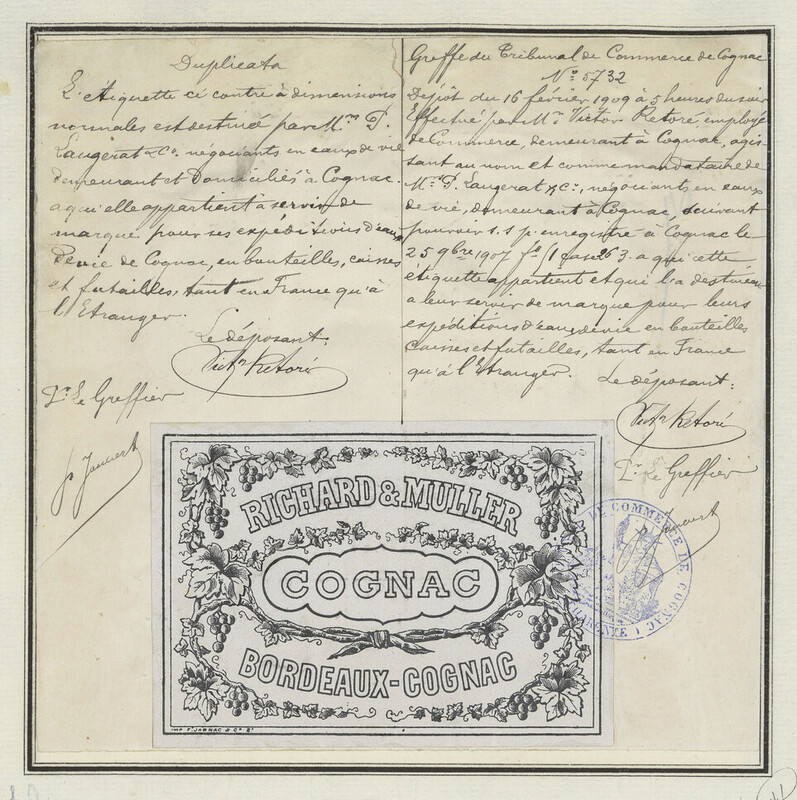 Duplicata
L'étiquette ci contre à dimensions
normales est destinée par Mrs P.
Laugerat & Co. négociants en eaux de vie
demeurant et domiciliés à Cognac.
a qui elle appartient à servir de
marque pour ses expéditions d'eaux
de vie de Cognac, en bouteilles, caisses
et futailles, tant en France qu'à
l'Etranger.
Le déposant.
Victor Retoré
Pr. Le Greffier
Greffe du Tribunal de Commerce de Cognac
No. 5732
Dépôt du 16 février 1909 à 5 heures du soir
Effectué par Mr. Victor Retoré, employé
de Commerce, demeurant à Cognac, agis
sant au nom et comme mandataire de
Mrs. P. Laugerat & Co., négociants en eaux
de vie, demeurant à Cognac, suivant
pouvoir s. s. p. enregistré à Cognac le
25 9bre 1907 fo 11 case 263. a qui cette
étiquette appartient et qui l'a destinée
a leur servir de marque pour leurs
expéditions d'eau de vie en bouteilles
caisses et futailles, tant en France
qu'à l'Etranger.
Le déposant:
Victor Retoré
Pr. Le Greffier
RICHARD & MULLER
COGNAC
BORDEAUX-COGNAC
IMP. F. JARNAC & Ce
DE COMMERCE DE COGNAC
CHARENTE